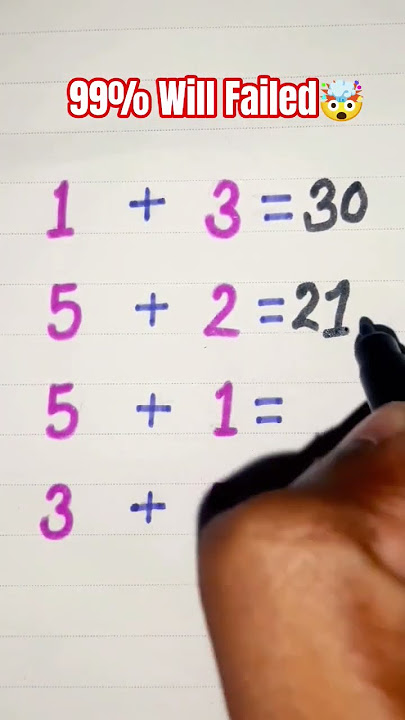 99% Will Failed🤯
1 + 3 = 30
5 + 2 = 21
5 + 1 =
3 +